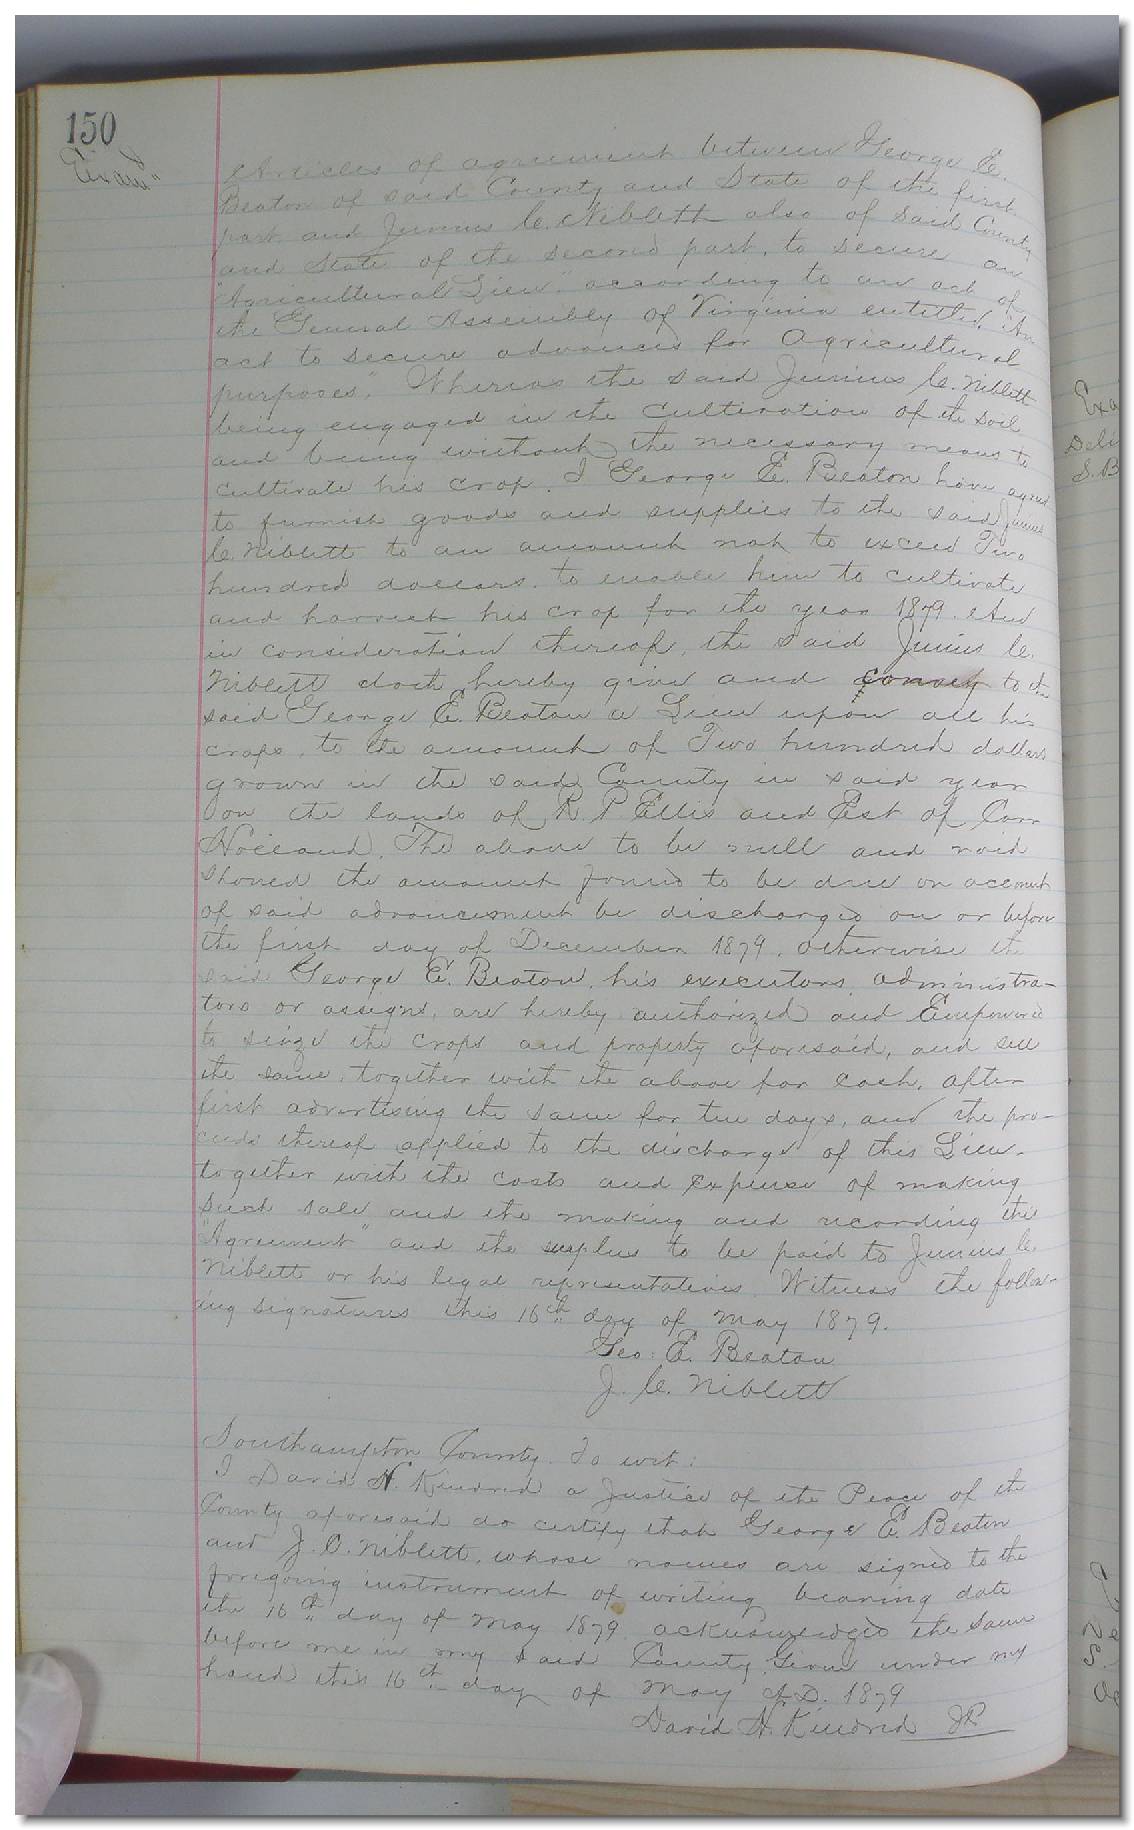 150
Exam'd
Articles of agreement between George E.
Beaton of said County and State of the first
part and Junius C. Niblett also of said County
and State of the second part, to secure an
"Agricultural Lien", according to an act of
the General Assembly of Virginia entitled, "An
act to secure advances for Agricultural
purposes". Whereas the said Junius C. Niblett
being engaged in the cultivation of the soil
and being without the necessary means to
cultivate his crop. I George E. Beaton have agreed
to furnish goods and supplies to the said Junius
C. Niblett to an amount not to exceed Two
hundred dollars. to enable him to cultivate
and harvest his crop for the year 1879. And
in consideration thereof, the said Junius C.
Niblett doth hereby give and convey to the
said George E. Beaton a Lien upon all his
crops, to the amount of Two hundred dollars
grown in the said County in said year
on the lands of R. P. Ellis and Est of
Holland. The above to be null and void
should the amount found to be due on account
of said advancement be discharged on or before
the first day of December 1879. otherwise the
said George E. Beaton, his executors, administra-
tors or assigns, are hereby authorized and Empowered
to seize the crops and property aforesaid, and sell
the same, together with the above for cash, after
first advertising the same for ten days, and the pro-
ceeds thereof applied to the discharge of this Lien
together with the costs and expense of making
such sale and the making and recording this
"Agreement" and the surplus to be paid to Junius C.
Niblett or his legal representatives. Witness the follow-
ing signatures this 16th day of May 1879.
Geo: E. Beaton
J. C. Niblett
Southampton County. To wit:
I David N. Kindred a Justice of the Peace of the
County aforesaid do certify that George E. Beaton
and J. C. Niblett, whose names are signed to the
foregoing instrument of writing bearing date
the 16th day of May 1879 acknowledged the same
before me in my said County. Given under my
hand this 16th day of May A.D. 1879
David N. Kindred JP
Exa
Deli
S. B